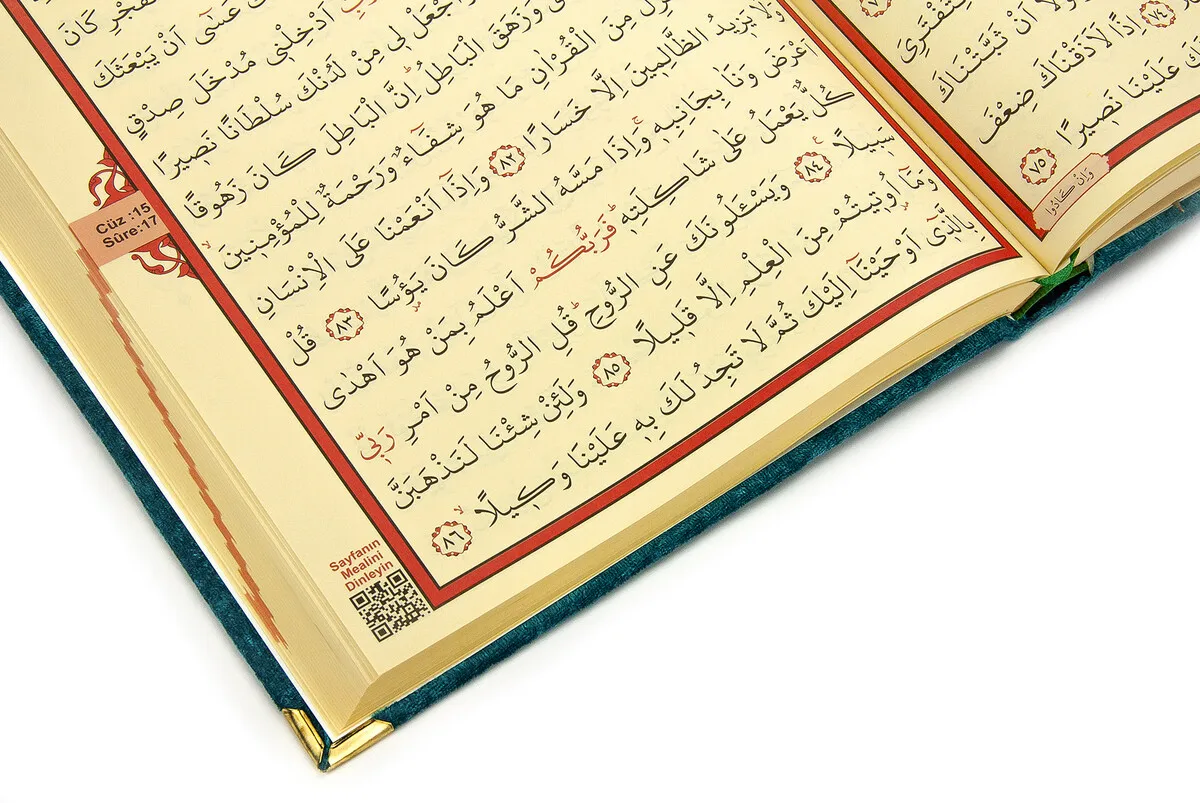 تَفْتَرِىَ
اَنْ ثَبَّتْنَاكَ
٧٤ اِذًا لَاَذَقْنَاكَ ضِعْفَ
كَ عَلَيْنَا نَص۪يرًا ٧٥
وَاِنْ كَادُوا
كَانَ
عَسٰٓى اَنْ يَبْعَثَكَ
اَدْخِلْن۪ى مُدْخَلَ صِدْقٍ
اجْعَلْ ل۪ى مِنْ لَدُنْكَ سُلْطَانًا نَص۪يرًا
وَزَهَقَ الْبَاطِلُ اِنَّ الْبَاطِلَ كَانَ زَهُوقًا
مِنَ الْقُرْاٰنِ مَا هُوَ شِفَٓاءٌ وَرَحْمَةٌ لِلْمُؤْمِن۪ينَ
وَلَا يَز۪يدُ الظَّالِم۪ينَ اِلَّا خَسَارًا ٨٢ وَاِذَٓا اَنْعَمْنَا عَلَى الْاِنْسَانِ
اَعْرَضَ وَنَاٰ بِجَانِبِه۪ وَاِذَا مَسَّهُ الشَّرُّ كَانَ يَؤُ۫سًا ٨٣ قُلْ
كُلٌّ يَعْمَلُ عَلٰى شَاكِلَتِه۪ فَرَبُّكُمْ اَعْلَمُ بِمَنْ هُوَ اَهْدٰى
سَب۪يلًا ٨٤ وَيَسْـَٔلُونَكَ عَنِ الرُّوحِ قُلِ الرُّوحُ مِنْ اَمْرِ رَبّ۪ى
وَمَٓا اُو۫ت۪يتُمْ مِنَ الْعِلْمِ اِلَّا قَل۪يلًا ٨٥ وَلَئِنْ شِئْنَا لَنَذْهَبَنَّ
بِالَّذ۪ٓى اَوْحَيْنَٓا اِلَيْكَ ثُمَّ لَا تَجِدُ لَكَ بِه۪ عَلَيْنَا وَك۪يلًا ٨٦
Cüz :15
Sûre:17
Sayfanın
Mealini
Dinleyin